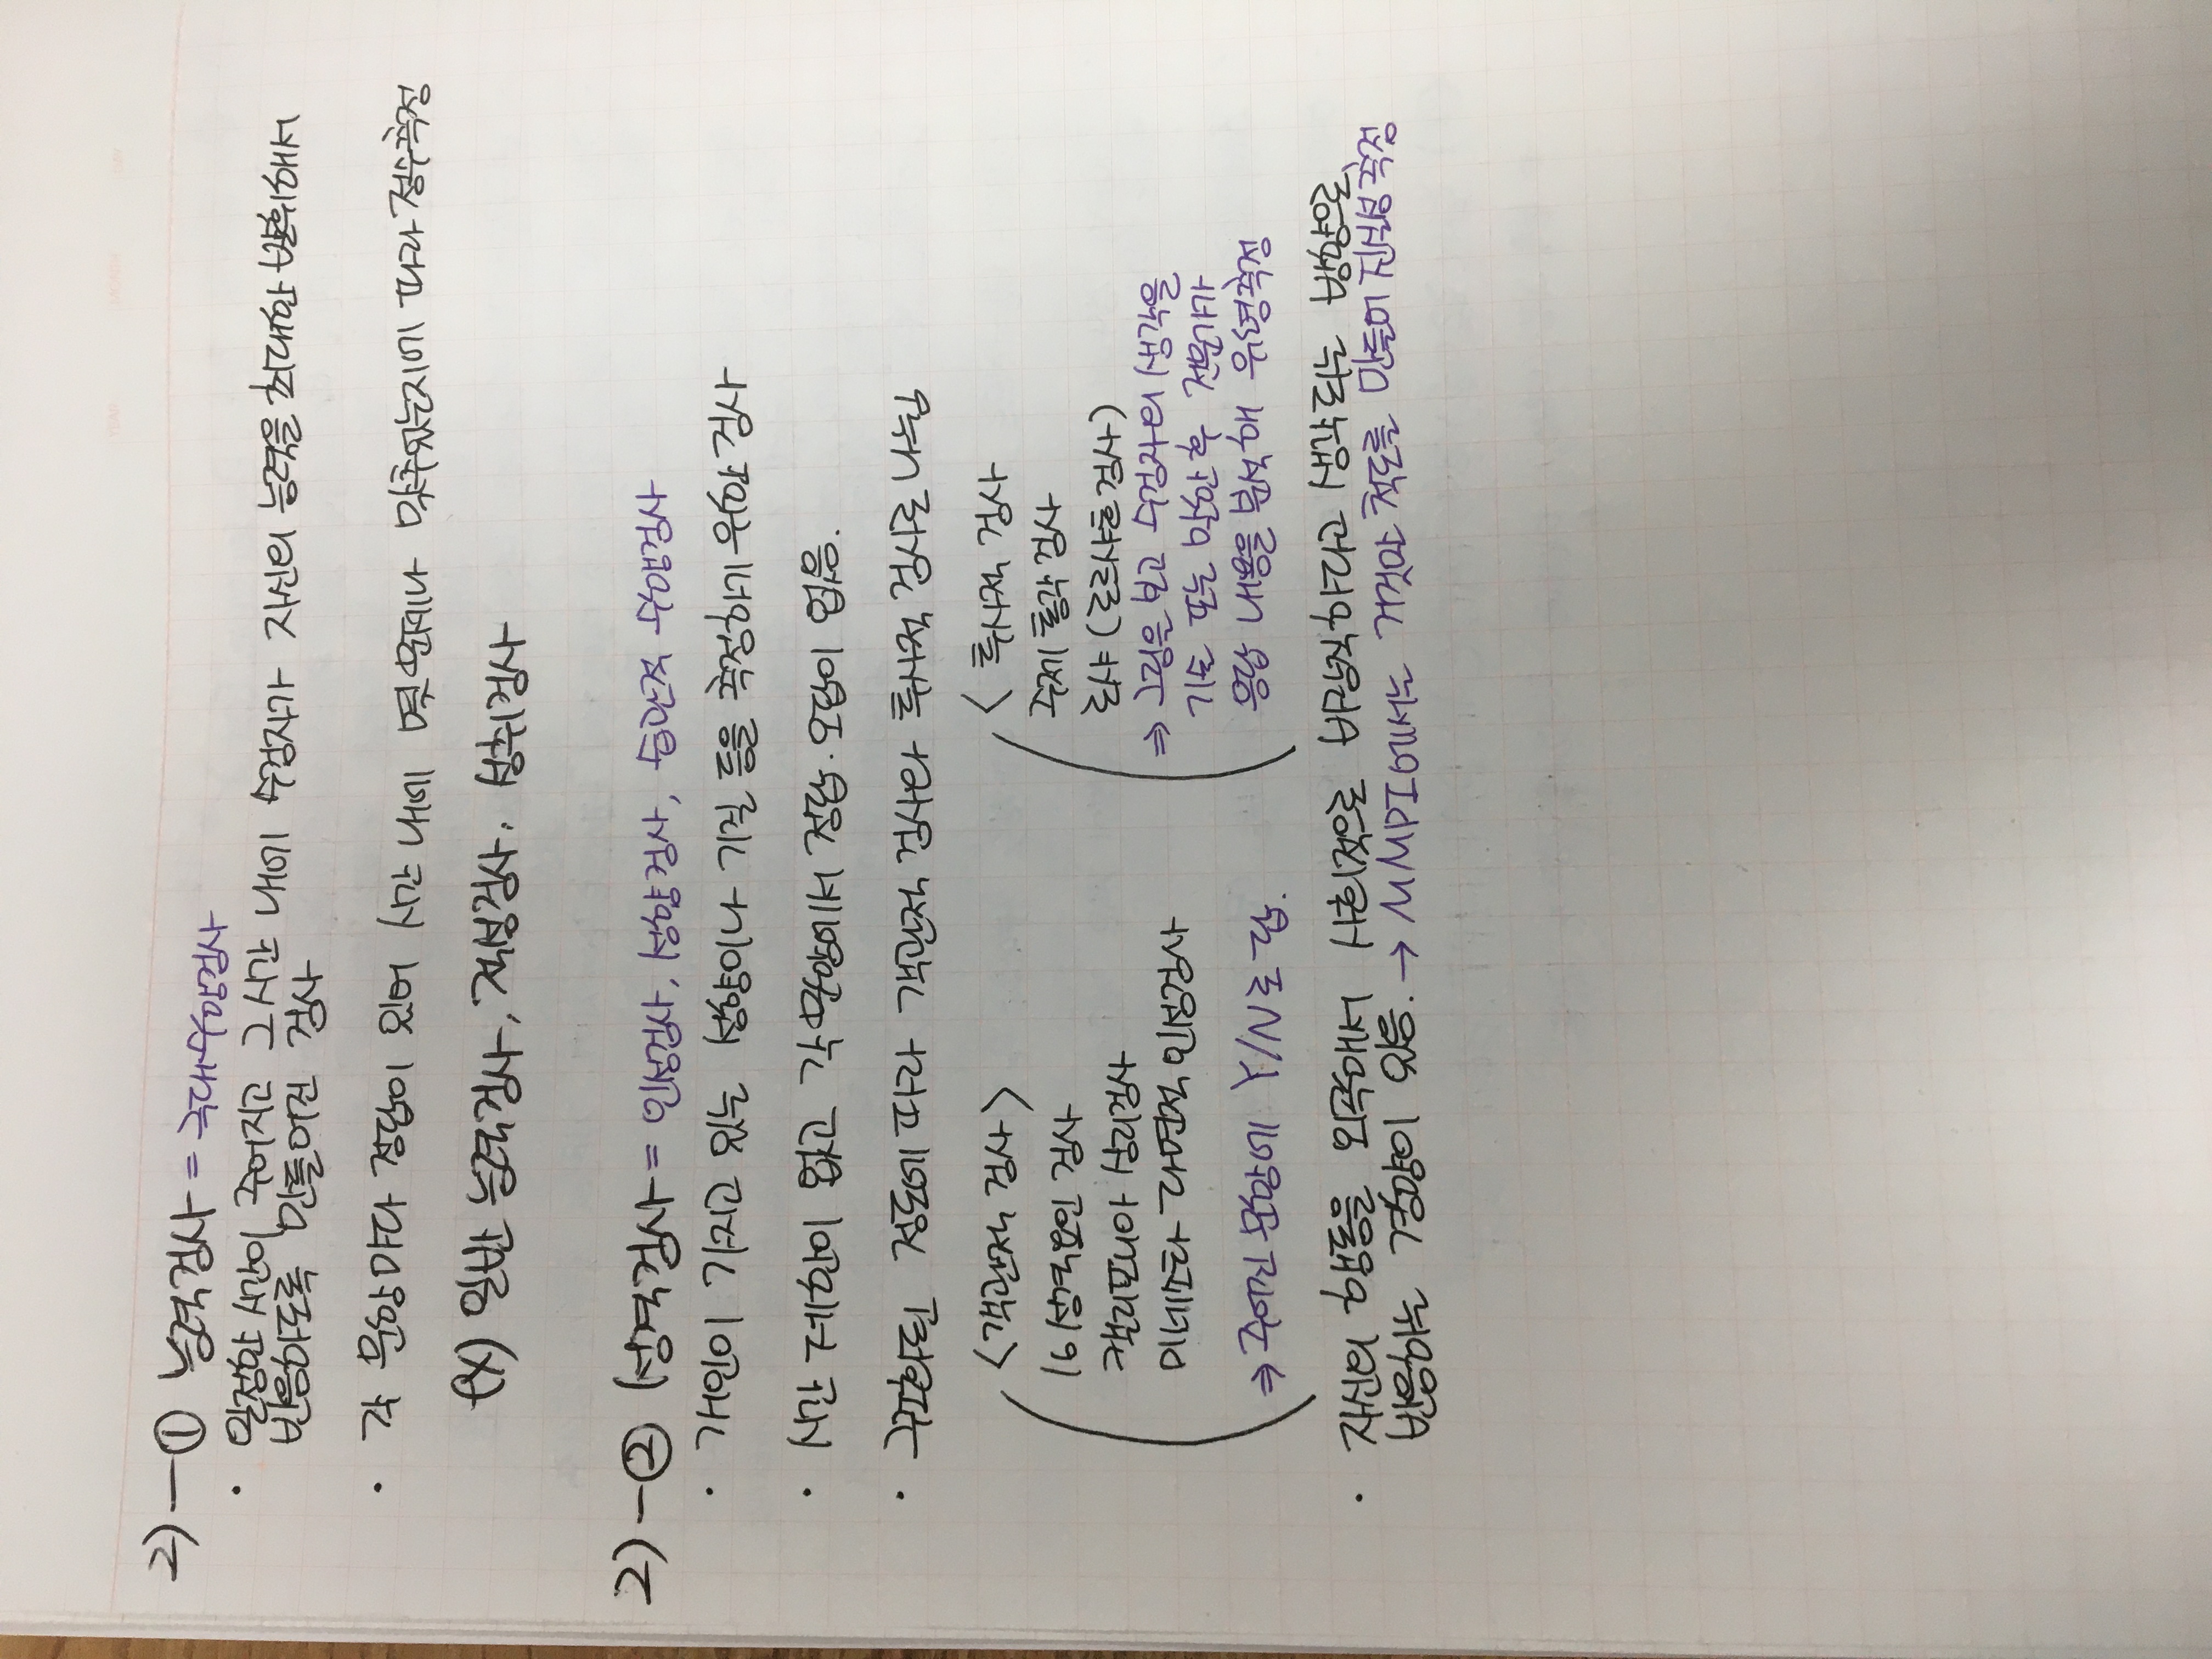 2) - ① 능력검사 = 극대수행검사
· 일정한 시간이 주어지고 그 시간 내에 수검자가 자신의 능력을 최대한 발휘해서
반응하도록 만들어진 검사
· 각 문항마다 정답이 있어 시간 내에 몇 문제나 맞추었는지에 따라 점수측정
(X) 일반 능력검사, 적성검사, 성취검사
2) - ② 성격검사 = 인성검사, 성향검사, 습관적 수행검사
· 개인이 가지고 있는 성향이나 기질 등을 측정하기 위한 검사
· 시간 제한이 없고 각 문항에서 정답·오답이 없음.
· 구조화된 정도에 따라 객관적 검사와 투사적 검사로 나눔
<객관적 검사>
16성격요인 검사
캘리포니아 심리검사
미네소타 다면적 인성검사
⇒ 주어진 문항에 Y/N로 답.
< 투사적 검사
주제 통각 검사
로샤 (로르샤흐 검사)
⇒ 그림을 보고 수검자의 생각을
기술 또는 말한 후 전문가가
응답 내용을 분석해 유형측정
· 자신의 행동을 왜곡해서 사회적으로 바람직하다고 생각되는 방향으로
반응하는 경향이 있음. → MMPI에서는 거짓말 척도를 만들어 진실성 측정